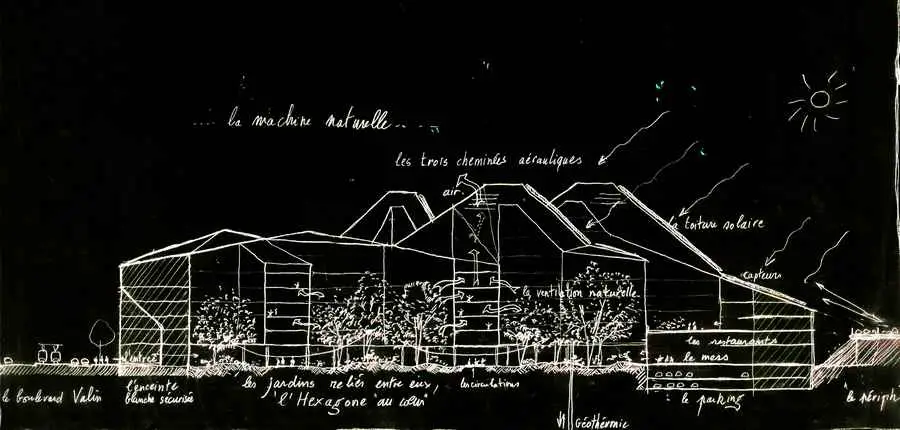 .... la machine naturelle....
les trois cheminées aérauliques
air.
la toiture solaire
capteurs
la ventilation naturelle
les restaurants
l'entrée
le mess
le boulevard Valin
l'enceinte
blanche sécurisée
les jardins reliés entre eux,
"l'Hexagone "au cœur"
les circulations
le parking
le périph
Géothermie